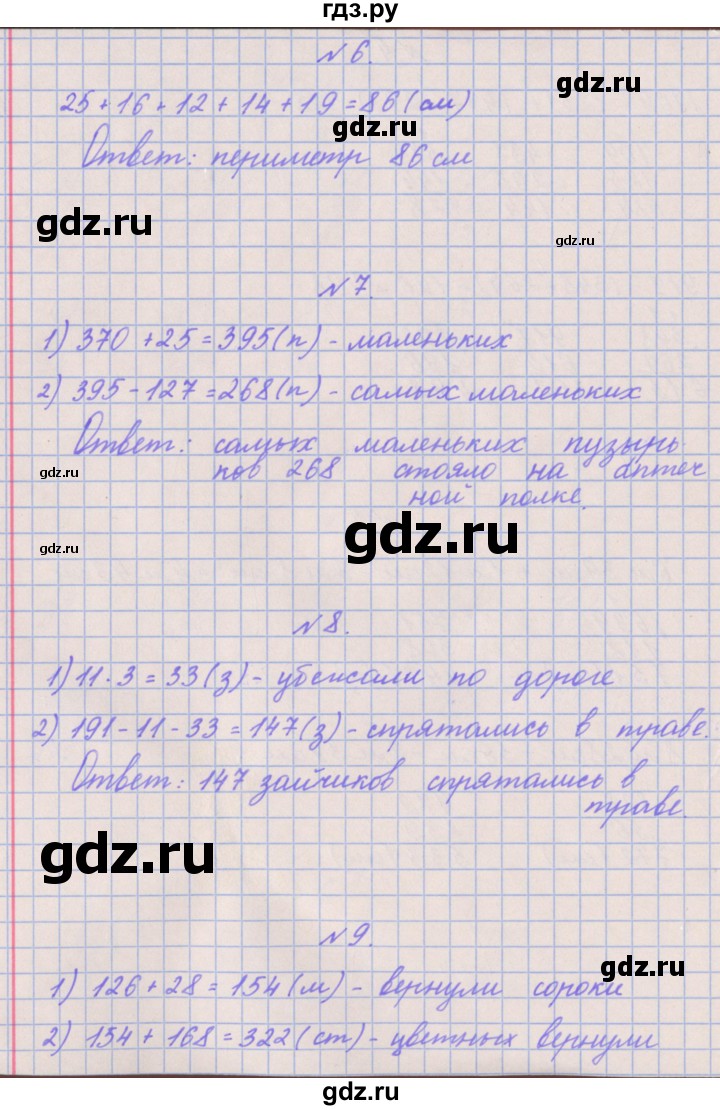 гдз.ру
№ 6.
gdz.ru
25 + 16 + 12 + 14 + 19 = 86 (см)
gdz.ru
Ответ: периметр 86 см
gdz.ru
gdz.ru
№ 7.
1) 370 + 25 = 395 (п) - маленьких
2) 395 - 127 = 268 (п) - самых маленьких
Ответ: самых маленьких пузырь
gdz.ru
ков 268 стояло на аптеч
ной полке.
gdz.ru
gdz.ru
№ 8.
1) 11 · 3 = 33 (з) - убежали по дороге
2) 191 - 11 - 33 = 147 (з) - спрятались в траве.
Ответ: 147 зайчиков спрятались в
траве.
gdz.ru
№ 9.
gdz.ru
1) 126 + 28 = 154 (м) - вернули сороки
2) 154 + 168 = 322 (ст) - цветных вернули
gdz.ru